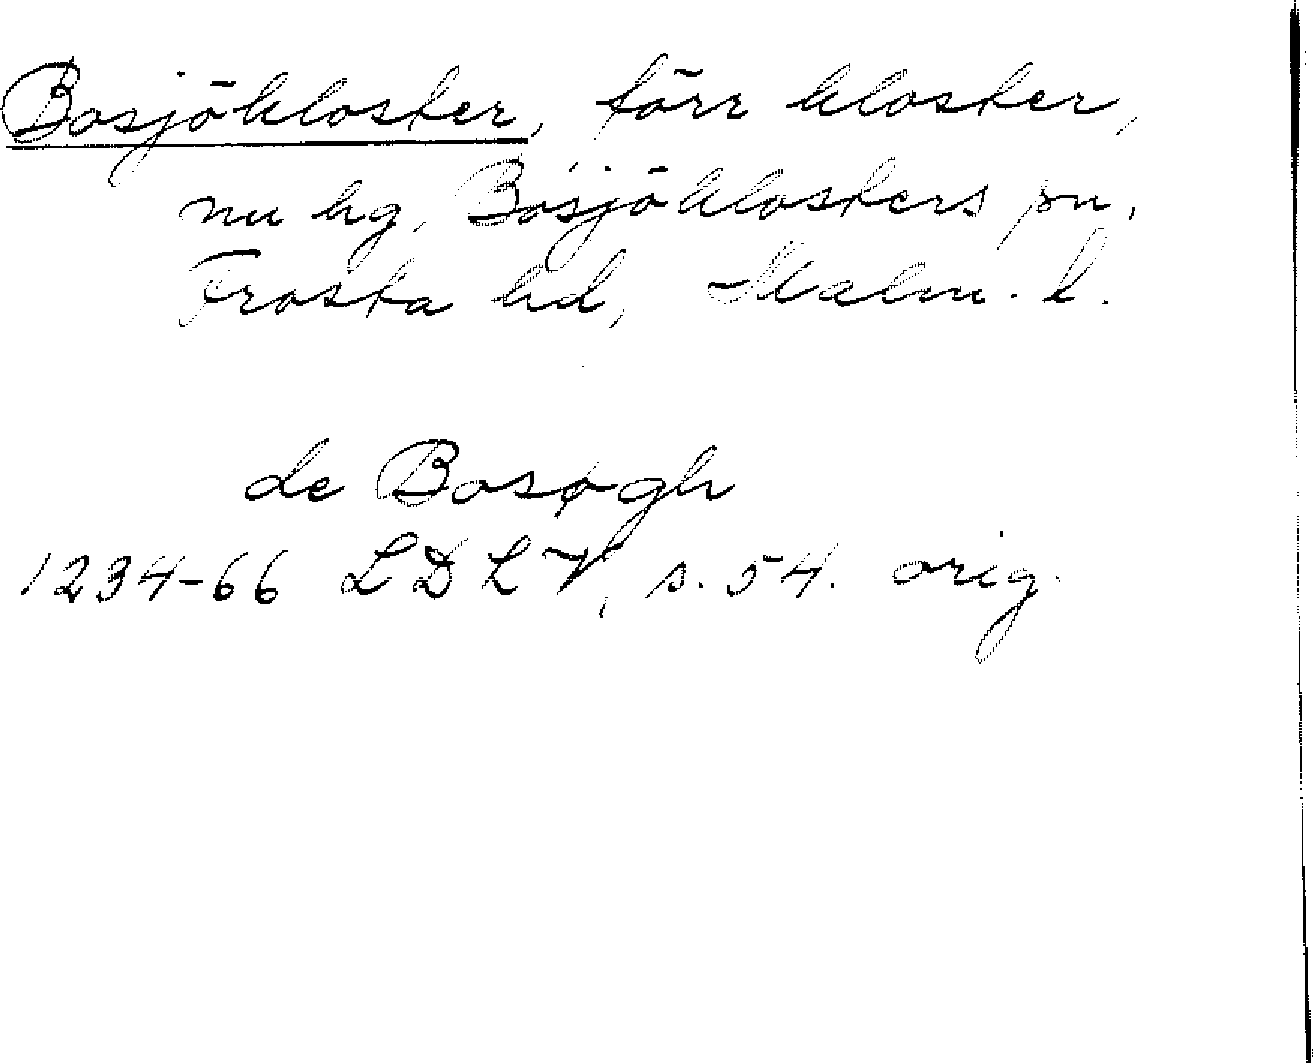 Bosjökloster, förr kloster,
nu hg, Bosjöklosters sn,
Frosta hd, Malm. l.
de Bosøgh
1234-66 LDLV, s. 54. orig.